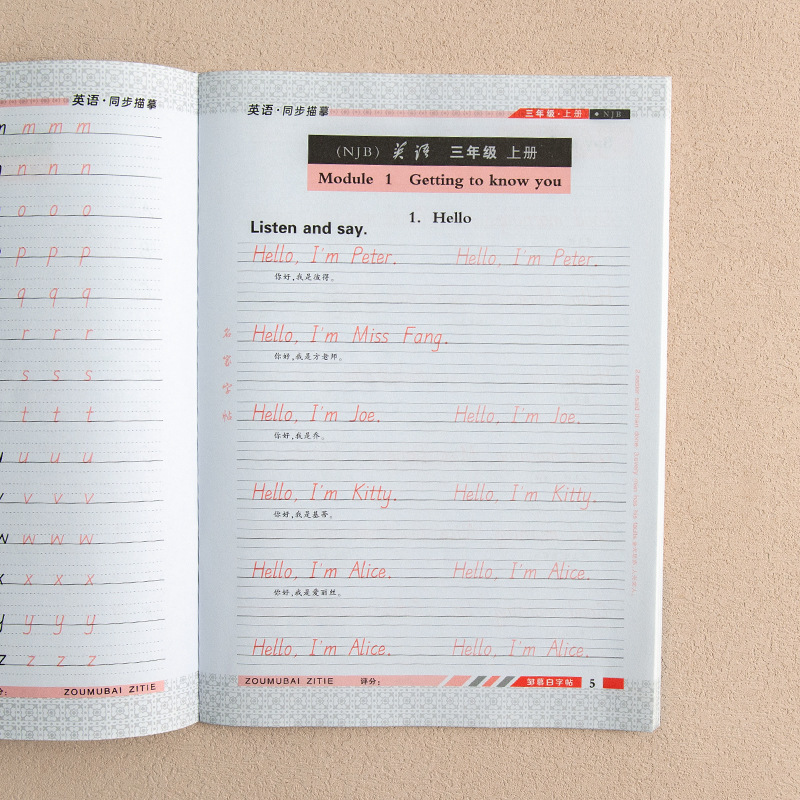 英语·同步描摹
m m m m
n n n
o o o
p p p
q q q
r r r
s s s
t t t
u u u
v v v
w w w w
x x x x
y y y y
z z z z
ZOUMUBAI ZITIE
英语·同步描摹
三年级·上册 ◆ NJB
(NJB) 英语 三年级 上册
Module 1 Getting to know you
1. Hello
Listen and say.
Hello, I'm Peter. Hello, I'm Peter.
你好,我是彼得。
Hello, I'm Miss Fang.
你好,我是方老师。
Hello, I'm Joe. Hello, I'm Joe.
你好,我是乔。
Hello, I'm Kitty. Hello, I'm Kitty.
你好,我是基蒂。
Hello, I'm Alice. Hello, I'm Alice.
你好,我是爱丽丝。
Hello, I'm Alice. Hello, I'm Alice.
ZOUMUBAI ZITIE 评分:
邹慕白字帖 5